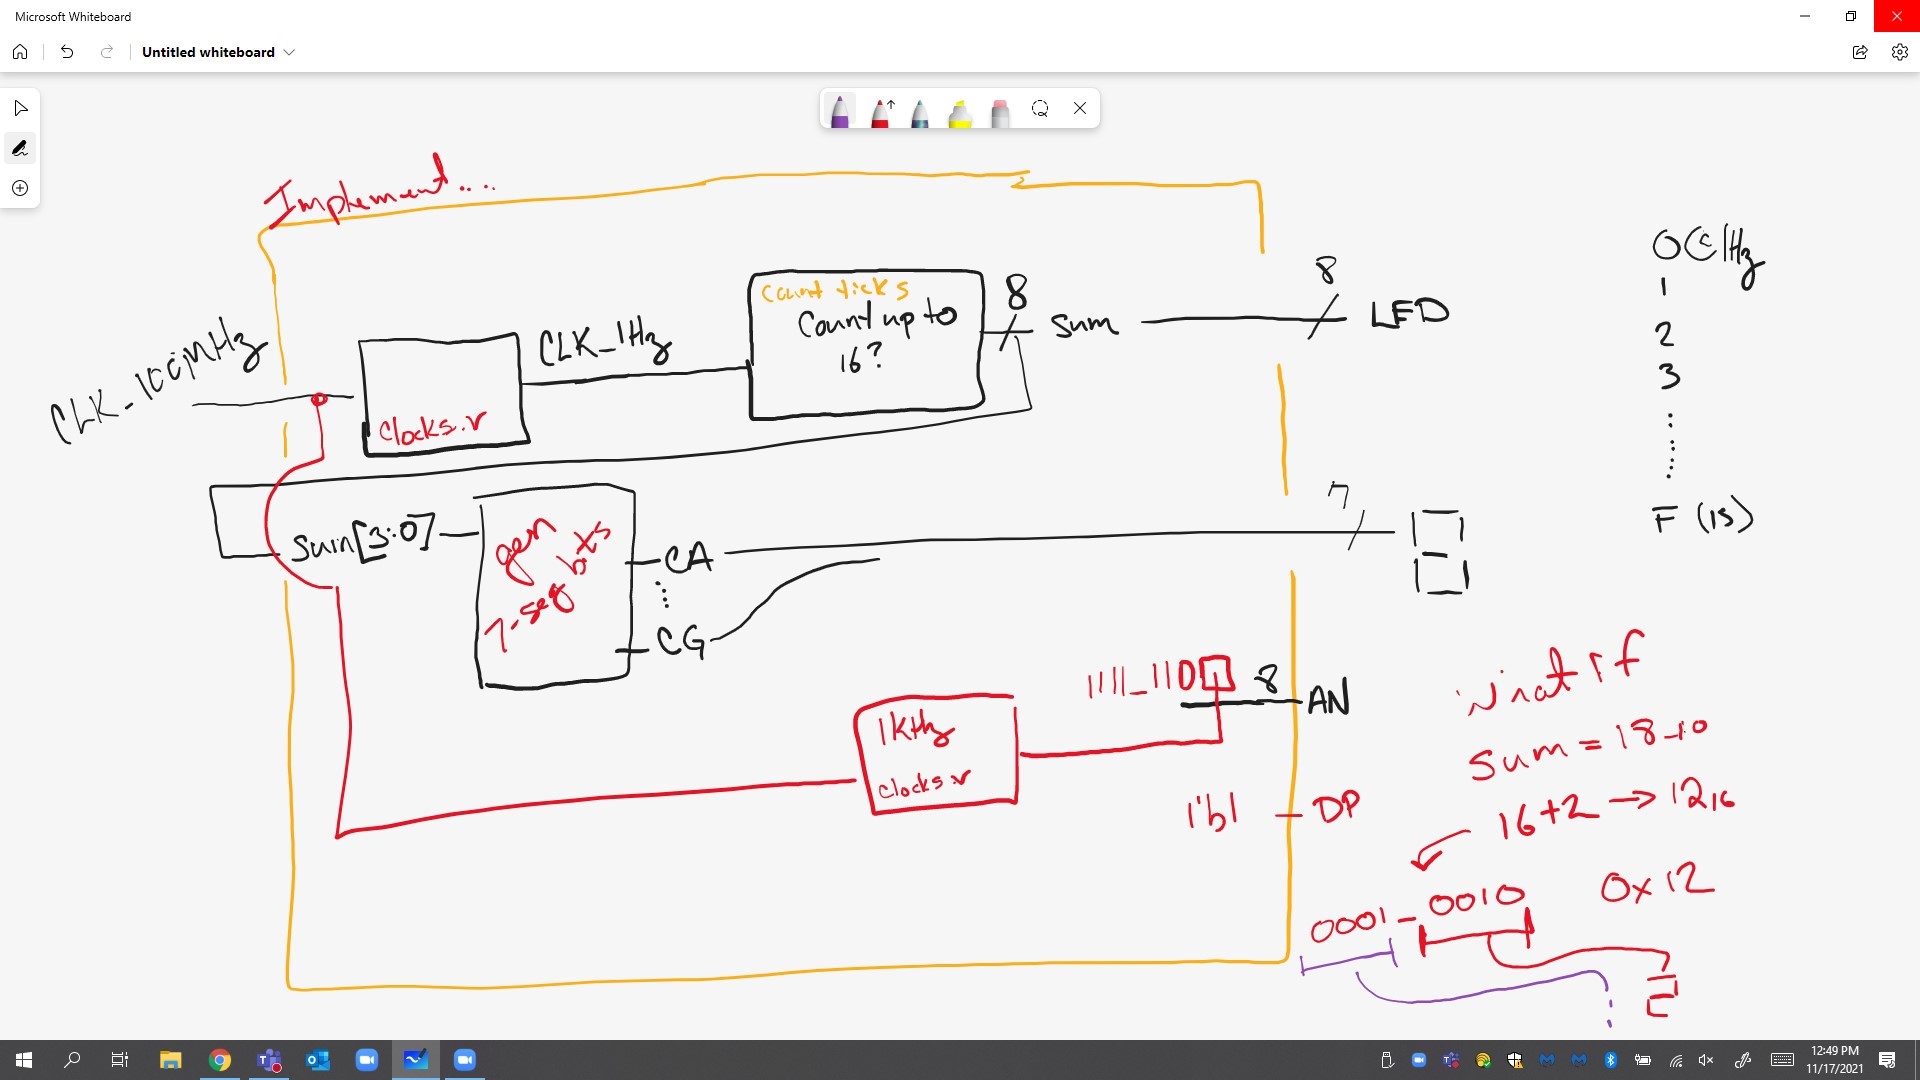 Microsoft Whiteboard
Untitled whiteboard
Implement...
CLK_100MHz
clocks.v
CLK_1Hz
Count ticks
Count up to
16?
8
sum
8
LED
0 @ 1Hz
1
2
3
F (15)
Sum[3:0]
gen
7-seg bits
CA
CG
7
1kHz
clocks.v
1111_1110
8
AN
1'b1
DP
What if
Sum = 18_10
16+2 → 12 16
0001-0010
0x12
12:49 PM
11/17/2021